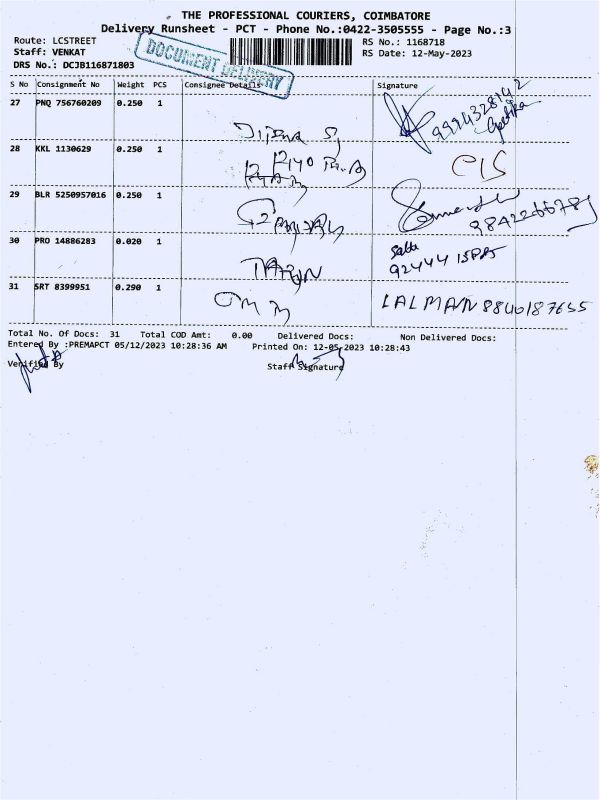 THE PROFESSIONAL COURIERS, COIMBATORE
Delivery Runsheet - PCT - Phone No.:0422-3505555 - Page No.:3
Route: LCSTREET
RS No.: 1168718
Staff: VENKAT
RS Date: 12-May-2023
DRS No.: DCJB116871803
DOCUMENT DELIVERY
S No Consignment No Weight PCS Consignee Details Signature
27 PNQ 756760209 0.250 1
28 KKL 1130629 0.250 1
29 BLR 5250957016 0.250 1
30 PRO 14886283 0.020 1 TARUN
31 SRT 8399951 0.290 1 LALMAN 8840187655
Total No. Of Docs: 31 Total COD Amt: 0.00 Delivered Docs: Non Delivered Docs:
Entered By :PREMAPCT 05/12/2023 10:28:36 AM Printed On: 12-05-2023 10:28:43
Verified By Staff Signature